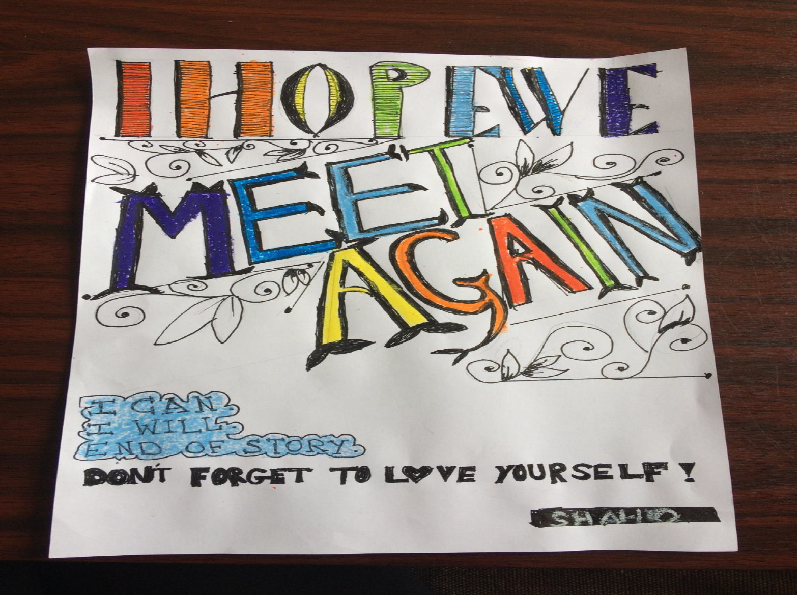 I HOPE WE
MEET
AGAIN
I CAN
I WILL
END OF STORY
DON'T FORGET TO LOVE YOURSELF!